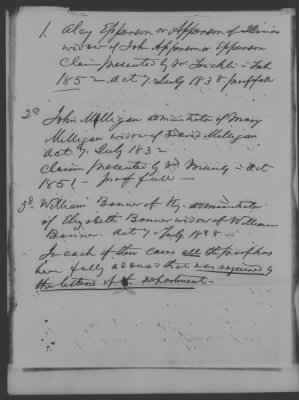 1. Alcy Epperson or Apperson of Illinois
widow of John Apperson or Epperson
Claim presented by Mr Ficklin - Feb
1852 Act 7. July 1838 - proof full
2d John Milligan administrator of Mary
Milligan widow of David Milligan
Act 7. July 1832
Claim presented by Mr - Oct
1851 - proof full -
3d William Banner of Ky. administrator
of Elizabeth Banner widow of William
Banner. Act 7 July 1838 -
In each of these cases all the proof has
been fully adduced that was required by
the letters of the department -